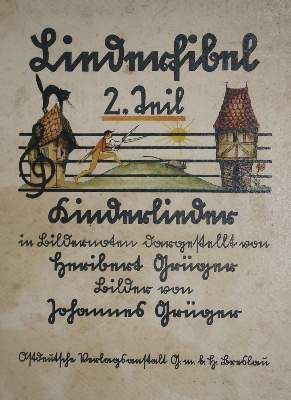 Liederfibel
2. Teil
Kinderlieder
in Bildernoten dargestellt von
Heribert Grüger
Bilder von
Johannes Grüger
Ostdeutsche Verlagsanstalt G. m. b. H. Breslau